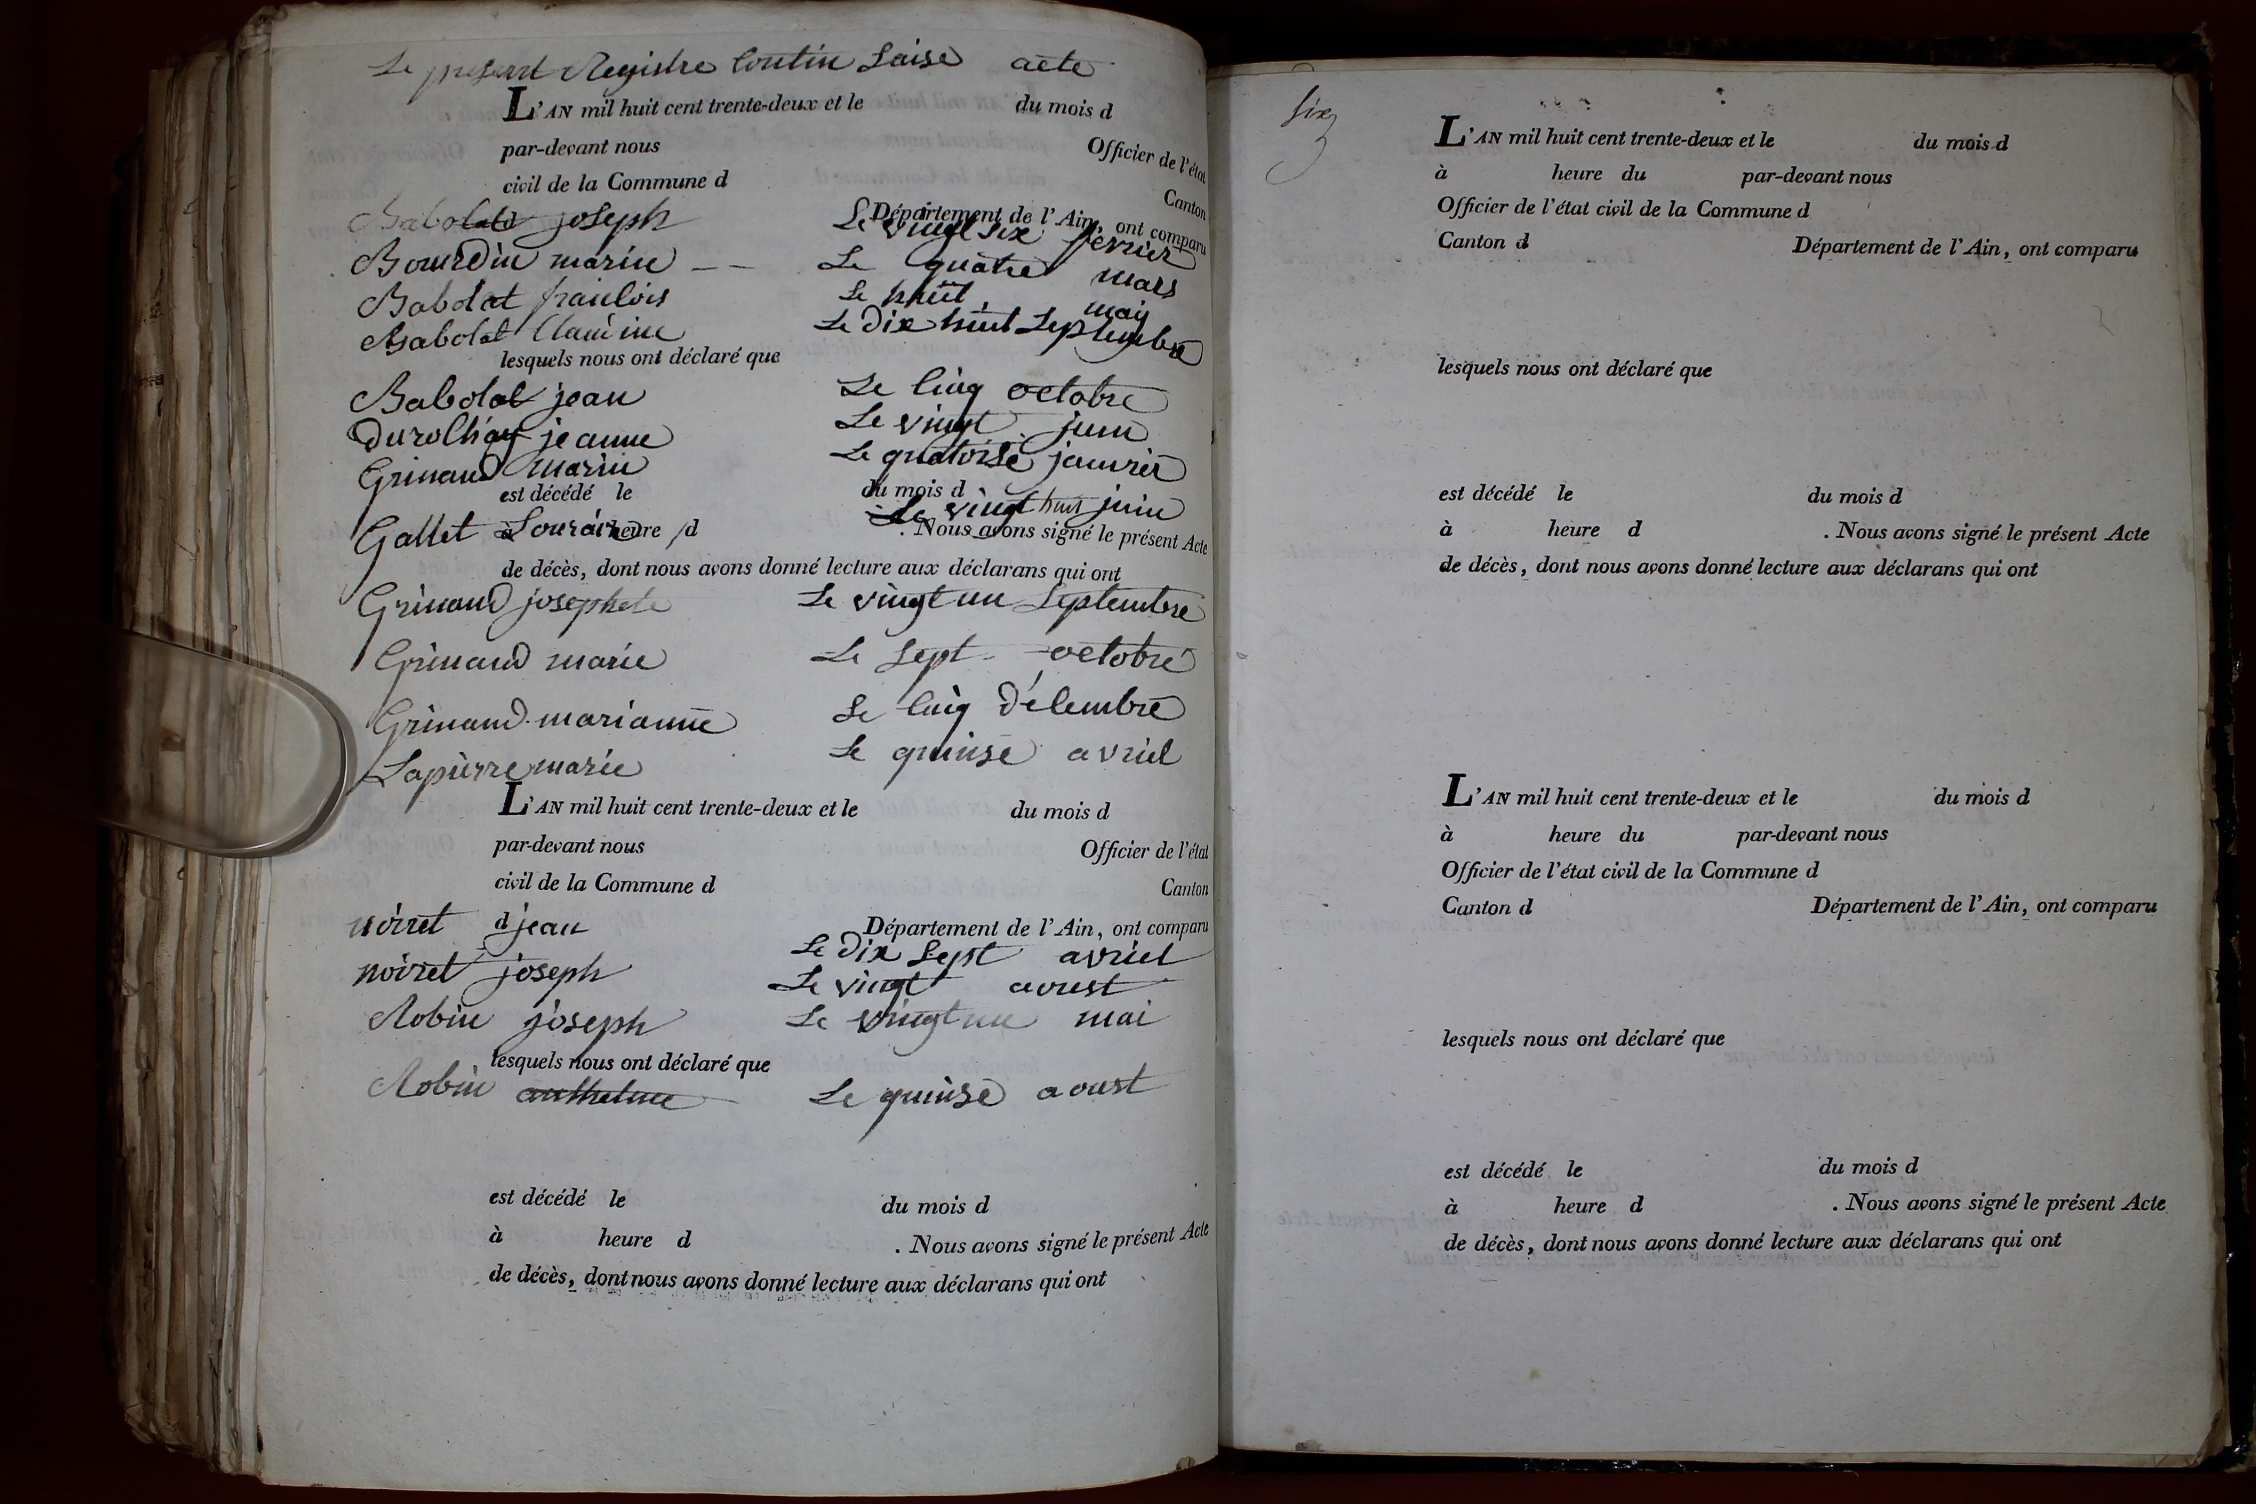 Le present Registre Contin Saise acte
L'AN mil huit cent trente-deux et le du mois d
par-devant nous Officier de l'état
civil de la Commune d Canton
Département de l'Ain, ont comparu
Babolat joseph Le vingt six fevrier
Bourdin marie Le quatre mars
Babolat francois Le huit may
Babolat Claudine Le Dix huit Septembre
lesquels nous ont déclaré que
Babolat jean Le Cinq octobre
jeanne Le vingt juin
Grinand marie Le quatorse janvier
est décédé le du mois d
Gallet Le vingt huit juin
à heure d . Nous avons signé le présent Acte
de décès, dont nous avons donné lecture aux déclarans qui ont
Grinand josephete Le vingt un Septembre
Grinand marie Le Sept octobre
Grinand marianne Le Cinq Décembre
Lapierre marie Le quinse avriel
L'AN mil huit cent trente-deux et le du mois d
par-devant nous Officier de l'état
civil de la Commune d Canton
d Département de l'Ain, ont comparu
noiret jean Le Dix Sept avriel
noiret joseph Le vingt aoust
Robin joseph Le vingt un mai
lesquels nous ont déclaré que
Robin anthelme Le quinse aoust
est décédé le du mois d
à heure d . Nous avons signé le présent Acte
de décès, dont nous avons donné lecture aux déclarans qui ont
Six
L'AN mil huit cent trente-deux et le du mois d
à heure du par-devant nous
Officier de l'état civil de la Commune d
Canton d Département de l'Ain, ont comparu
lesquels nous ont déclaré que
est décédé le du mois d
à heure d . Nous avons signé le présent Acte
de décès, dont nous avons donné lecture aux déclarans qui ont
L'AN mil huit cent trente-deux et le du mois d
à heure du par-devant nous
Officier de l'état civil de la Commune d
Canton d Département de l'Ain, ont comparu
lesquels nous ont déclaré que
est décédé le du mois d
à heure d . Nous avons signé le présent Acte
de décès, dont nous avons donné lecture aux déclarans qui ont